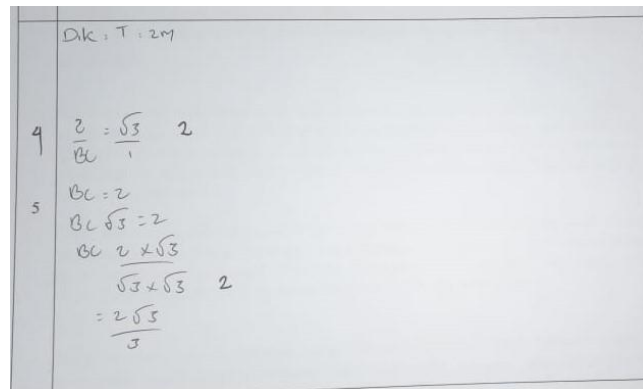 Dik : T : 2M
4 2/BC = √3/1 2
5 BC = 2
BC √3 = 2
BC 2 x √3
√3 x √3 2
= 2√3
3